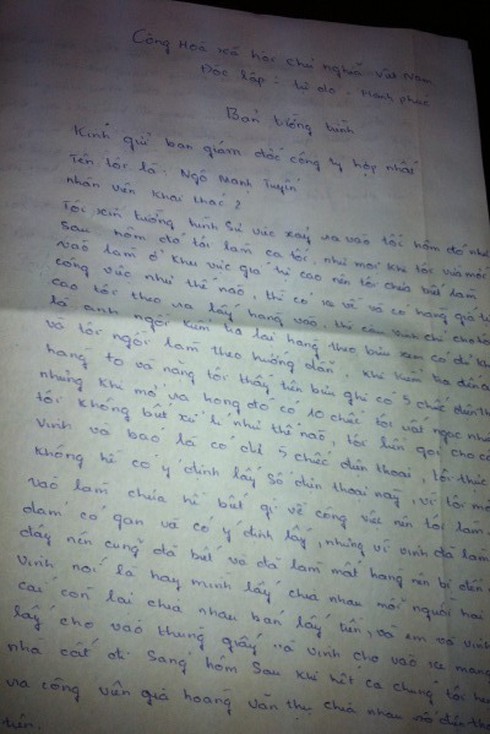 Cộng Hoà xã hội chủ nghĩa Việt Nam
Độc lập - tự do - Hạnh phúc
Bản tường trình
Kính gửi ban giám đốc công ty hợp nhất
Tên tôi là: Ngô Mạnh Tuyến
nhân viên khai thác 2
Tôi xin tường trình sự việc xảy ra vào tối hôm đó như
sau hôm đó tôi làm ca tối, như mọi khi tôi vừa mới
vào làm ở khu vực giá trị cao nên tôi chưa biết làm
công việc như thế nào, thì có xe về và có hàng giá trị
cao tôi theo ra lấy hàng vào, thì cậu vinh chỉ cho tôi
là anh ngồi kiểm tra lại hàng theo bưu xem có đủ không
và tôi ngồi làm theo hướng dẫn, khi kiểm tra đến
hàng to và nặng tôi thấy trên bưu ghi có 5 chiếc điện thoại
nhưng khi mở ra trong đó có 10 chiếc tôi rất ngạc nhiên
tôi không biết xử lí như thế nào, tôi liền gọi cho
vinh và bảo là có dư 5 chiếc điện thoại, tôi thực
không hề có ý định lấy số điện thoại này, vì tôi mới
vào làm chưa hề biết gì về công việc nên tôi làm
dám có gan và có ý định lấy, nhưng vì vinh đã làm
đấy nên cũng đã biết và đã làm mất hàng nên bị đền
vinh nói là hay mình lấy chia nhau mỗi người hai
cái còn lại chia nhau bán lấy tiền, và em và vinh
lấy cho vào thùng giấy và vinh cho vào xe mang
nhà cất đi. Sáng hôm sau khi hết ca chúng tôi
ra công viên già hoàng văn thụ chia nhau số điện thoại
trên.